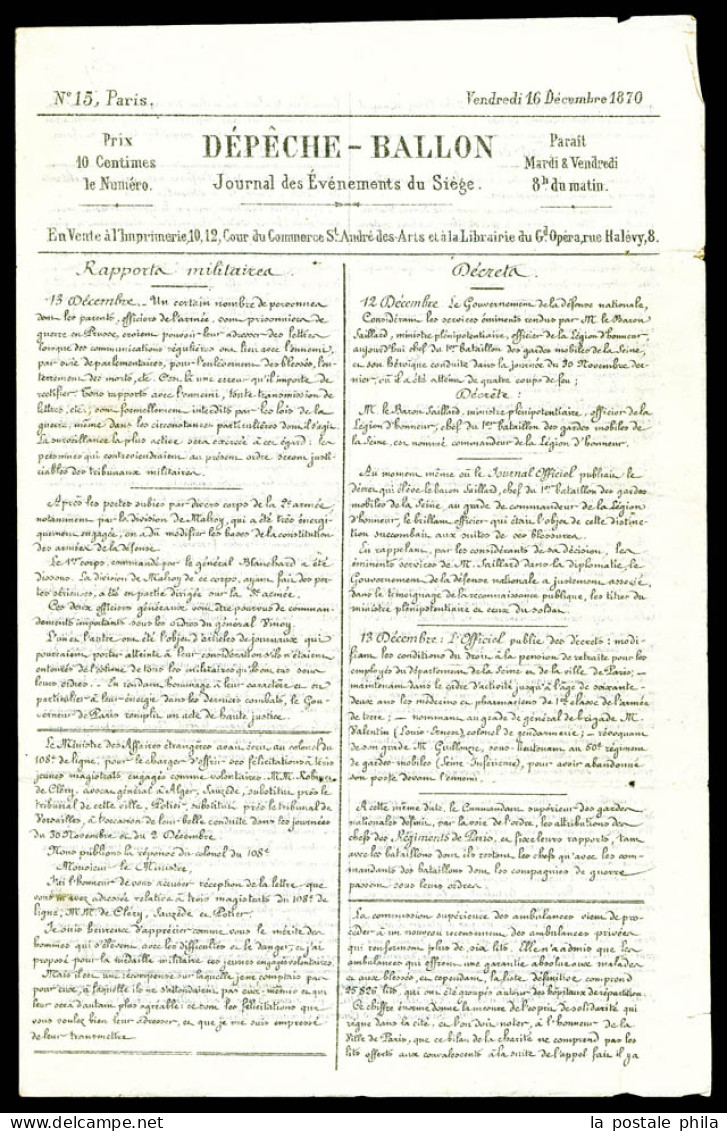 N° 15, Paris.
Vendredi 16 Décembre 1870
Prix
10 Centimes
le Numéro.
DÉPÊCHE - BALLON
Journal des Événements du Siège.
Parait
Mardi & Vendredi
8h du matin.
En Vente à l'Imprimerie, 10, 12, Cour du Commerce St André-des-Arts et à la Librairie du Gd Opéra, rue Halévy, 8.
Rapports militaires.
13 Décembre. Un certain nombre de personnes
dont les parents, officiers de l'armée, sont prisonniers de
guerre en Prusse, croient pouvoir leur adresser des lettres
lorsque des communications régulières ont lieu avec l'ennemi,
par voie de parlementaires, pour l'enlèvement des blessés, l'en-
terrement des morts, etc. C'est là une erreur qu'il importe de
rectifier. Tous rapports avec l'ennemi, toute transmission de
lettres, etc., sont formellement interdits par les lois de la
guerre, même dans les circonstances particulières dont il s'agit.
La surveillance la plus active sera exercée à cet égard : les
personnes qui contreviendraient au présent ordre seront justi-
ciables des tribunaux militaires.
Après les pertes subies par divers corps de la 2e armée,
notamment par la division de Malroy, qui a été très énergi-
quement engagée, on a dû modifier les bases de la constitution
des armées de la défense.
Le 1er corps, commandé par le général Blanchard a été
dissous. La division de Malroy de ce corps, ayant fait des per-
tes sérieuses, a été en partie dirigée sur la 3e armée.
Ces deux officiers généraux vont être pourvus de comman-
dements importants sous les ordres du général Vinoy.
L'un et l'autre ont été l'objet d'articles de journaux qui
pourraient porter atteinte à leur considération s'ils n'étaient
entourés de l'estime de tous les militaires qu'ils ont eus sous
leurs ordres. En rendant hommage à leur caractère et en
particulier à leur énergie dans les derniers combats, le Gou-
verneur de Paris remplit un acte de haute justice.
Le Ministre des Affaires étrangères avait écrit au colonel du
108e de ligne, pour le charger d'offrir ses félicitations à trois
jeunes magistrats engagés comme volontaires. MM. Robinet
de Cléry, avocat général à Alger, Sauzède, substitut près le
tribunal de cette ville, Potier, substitut près le tribunal de
Versailles, à l'occasion de leur belle conduite dans les journées
du 30 Novembre et du 2 Décembre.
Nous publions la réponse du colonel du 108e
Monsieur le Ministre,
J'ai l'honneur de vous accuser réception de la lettre que
vous m'avez adressée relative à trois magistrats du 108e de
ligne, MM. de Cléry, Sauzède et Potier.
Je suis heureux d'apprécier comme vous le mérite des
hommes qui s'élèvent avec les difficultés et le danger, et j'ai
proposé pour la médaille militaire ces jeunes engagés volontaires.
Mais il est une récompense sur laquelle je ne comptais pas
pour eux, à laquelle ils ne s'attendaient pas eux-mêmes et qui
leur sera d'autant plus agréable : ce sont les félicitations que
vous voulez bien leur adresser, et que je me suis empressé
de leur transmettre.
Décrets.
12 Décembre. Le Gouvernement de la défense nationale,
Considérant les services éminents rendus par M. le Baron
Saillard, ministre plénipotentiaire, officier de la Légion d'honneur,
aujourd'hui chef du 1er bataillon des gardes mobiles de la Seine,
et son héroïque conduite dans la journée du 30 Novembre der-
nier, où il a été atteint de quatre coups de feu ;
Décrète :
M. le Baron Saillard, ministre plénipotentiaire, officier de la
Légion d'honneur, chef du 1er bataillon des gardes mobiles de
la Seine, est nommé commandeur de la Légion d'honneur.
Au moment même où le Journal Officiel publiait le
décret qui élève le baron Saillard, chef du 1er bataillon des gardes
mobiles de la Seine, au grade de commandeur de la Légion
d'honneur, le brillant officier qui était l'objet de cette distinc-
tion succombait aux suites de ses blessures.
En rappelant, par les considérants de sa décision, les
éminents services de M. Saillard dans la diplomatie, le
Gouvernement de la défense nationale a justement associé,
dans le témoignage de la reconnaissance publique, les titres du
ministre plénipotentiaire et ceux du soldat.
13 Décembre : L'Officiel publie des décrets : modi-
fiant les conditions du droit à la pension de retraite pour les
employés du département de la Seine et de la ville de Paris ; —
maintenant dans le cadre d'activité jusqu'à l'âge de soixante-
deux ans les médecins et pharmaciens de 1re classe de l'armée
de terre ; — nommant au grade de général de brigade M.
Valentin (Louis Ernest) colonel de gendarmerie ; — révoquant
de son grade M. Guillouzic, sous-lieutenant au 50e régiment
de gardes-mobiles (Seine Inférieure), pour avoir abandonné
son poste devant l'ennemi.
A cette même date, le Commandant supérieur des gardes
nationales définit, par la voie de l'ordre, les attributions des
chefs des Régiments de Paris, et fixe leurs rapports, tant
avec les bataillons dont ils restent les chefs qu'avec les com-
mandants des bataillons dont les compagnies de guerre
passent sous leurs ordres.
La commission supérieure des ambulances vient de pro-
céder à un nouveau recensement des ambulances privées
qui renferment plus de six lits. Elle n'a admis que les
ambulances qui offrent une garantie absolue aux malades
et aux blessés, et cependant, la liste définitive comprend
25 826 lits, qui ont été groupés autour des hôpitaux de répartition.
Ce chiffre énorme donne la mesure de l'esprit de solidarité qui
règne dans la cité, et l'on doit noter, à l'honneur de la
Ville de Paris, que ce bilan de la charité ne comprend pas les
lits offerts aux convalescents à la suite de l'appel fait il y a
la postale phila